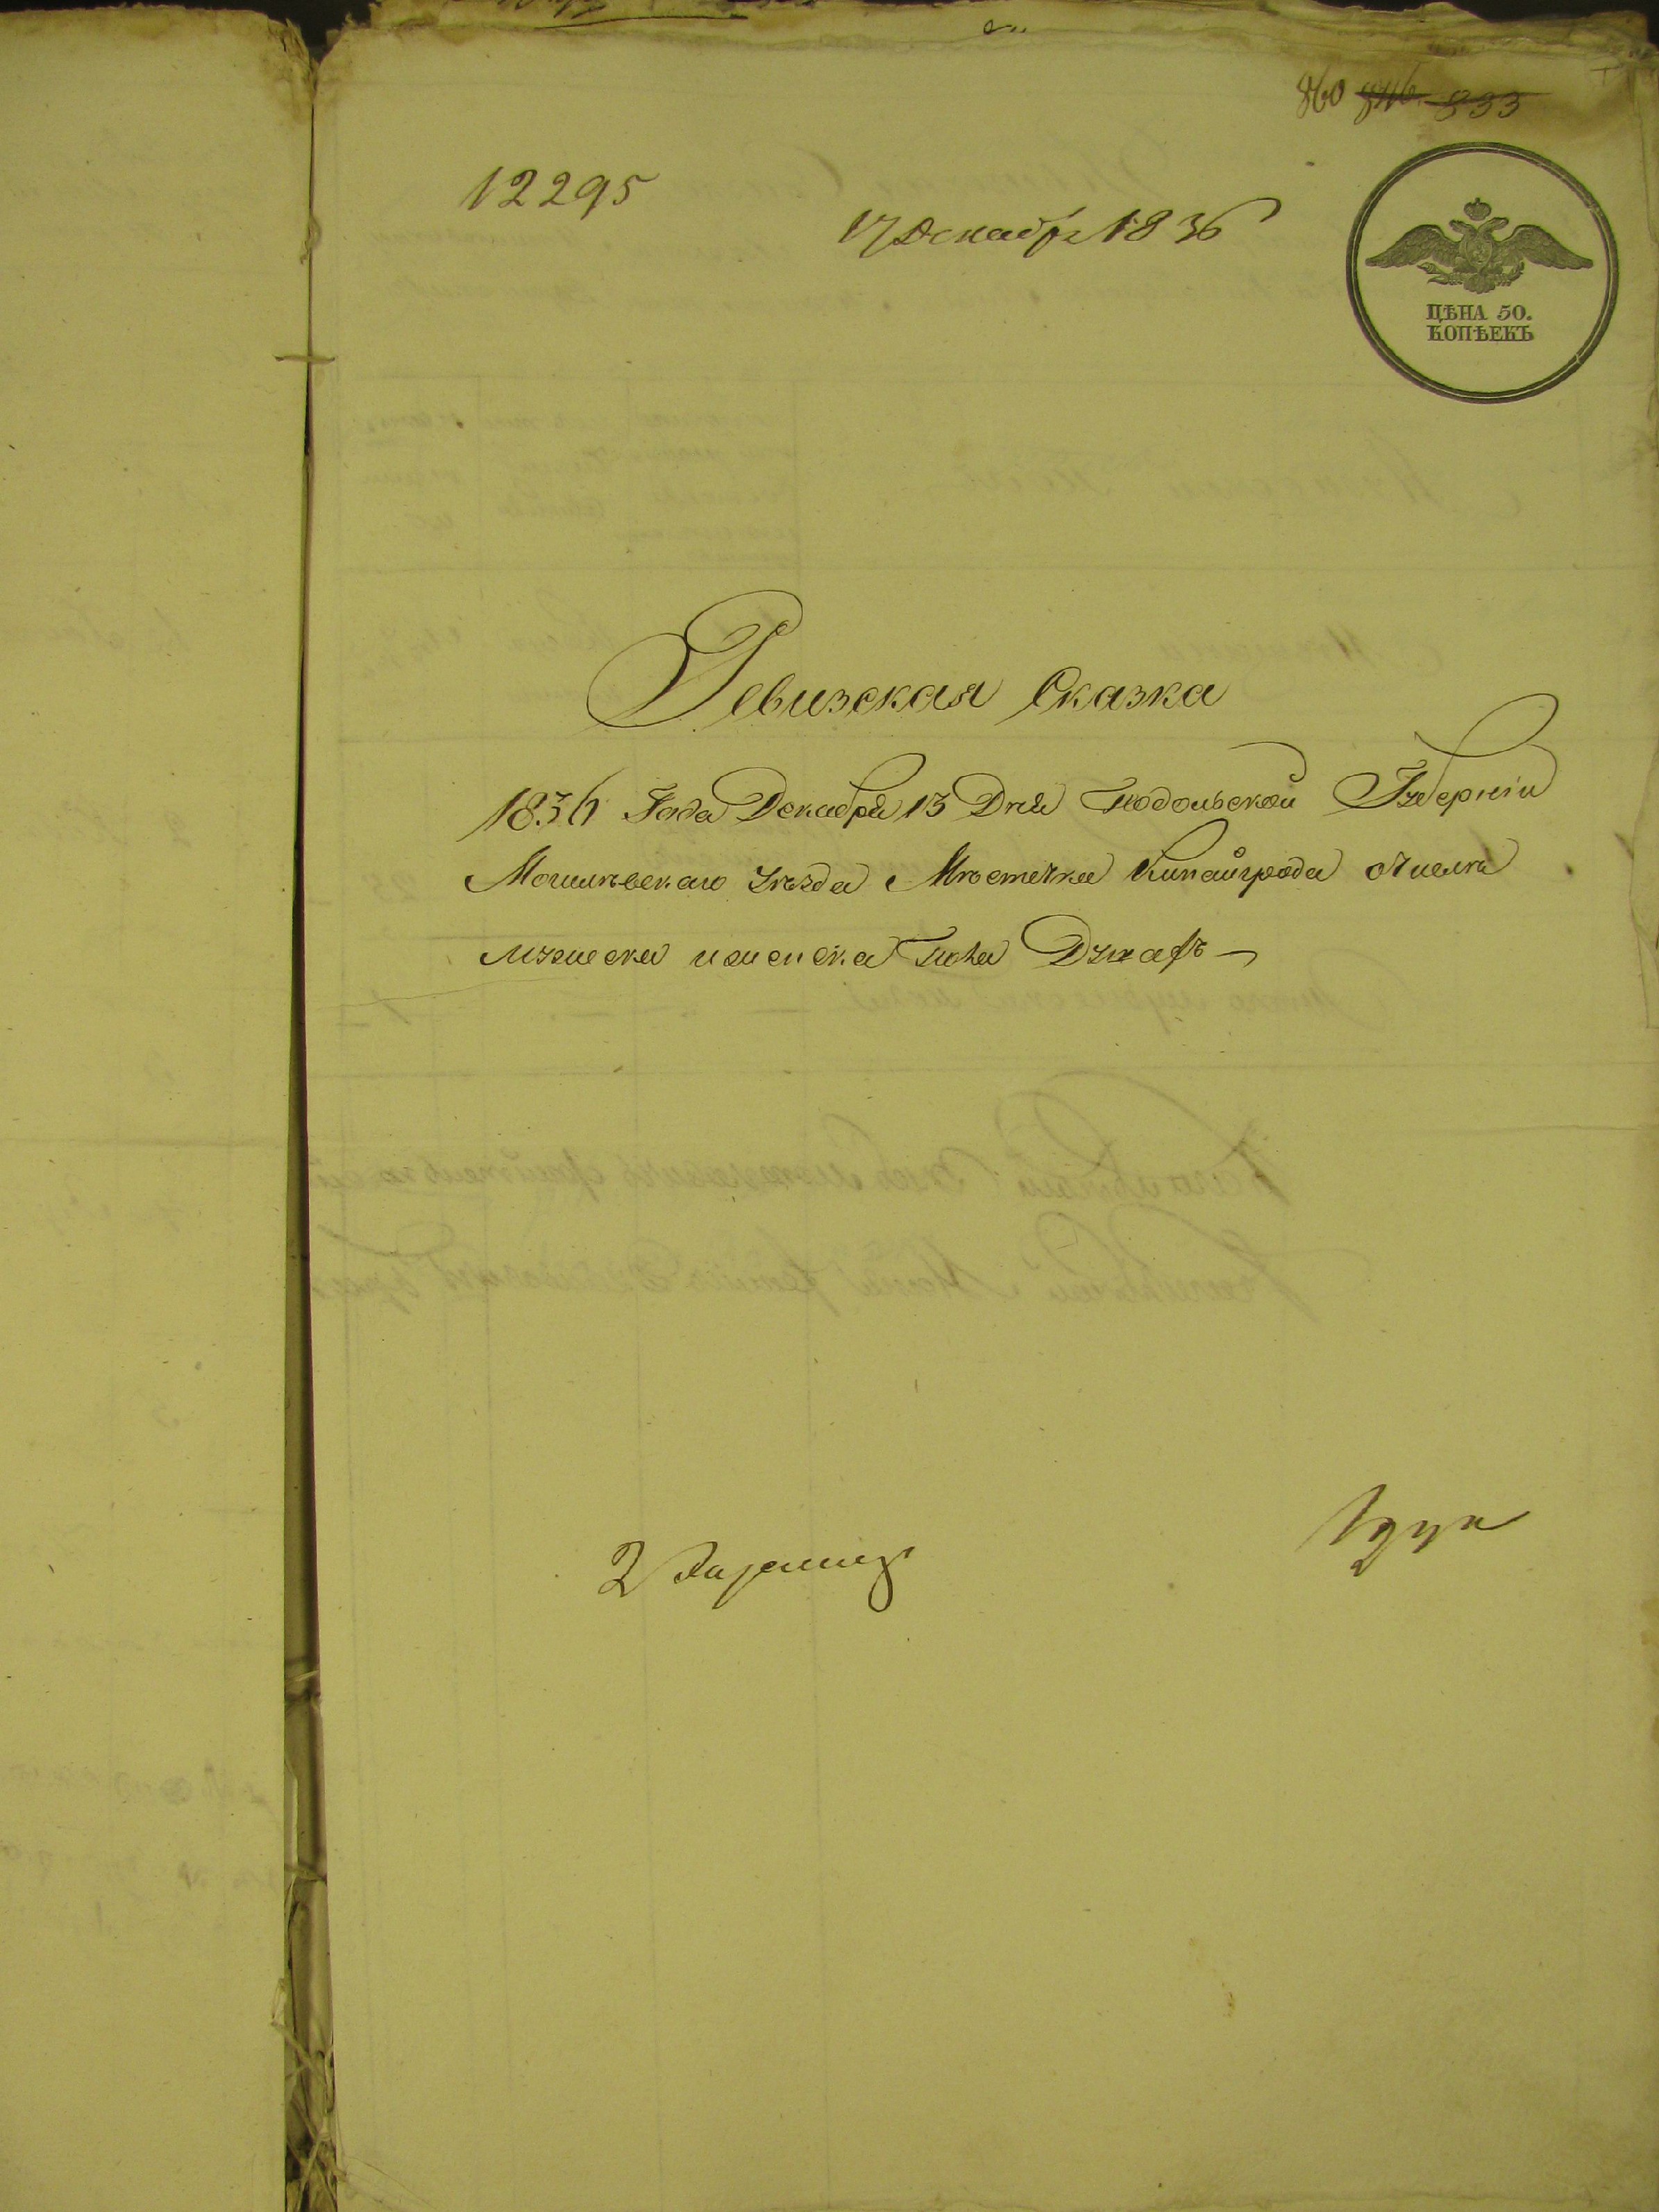 860 846 833
12295
17 Декабря 1836
ЦѢНА 50.
КОПѢЕКЪ
Ревизская Сказка
1836 Года Декабря 13 Дня Подольской Губерніи
Могилевскаго уѣзда Мѣстечка Копайгорода о числѣ
мужеска и женска пола Душъ
2